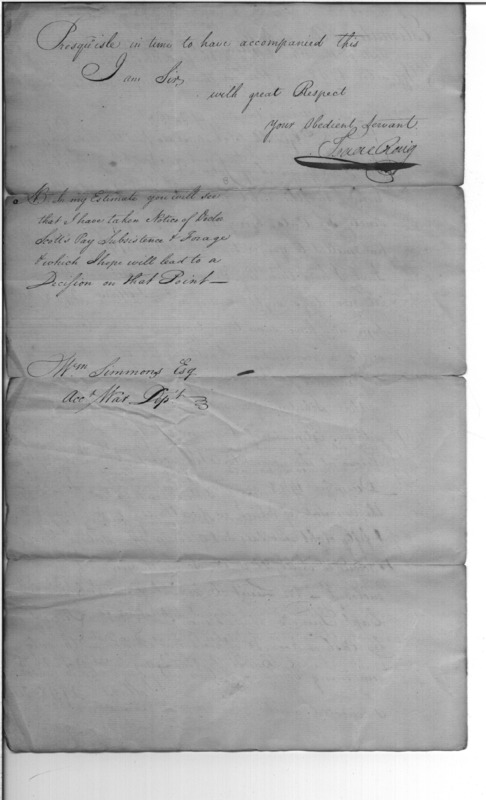 Presqu'isle in time to have accompanied this
I am Sir,
with great Respect
Your Obedient Servant
Isaac Craig
N.B. In my Estimate you will see
that I have taken Notice of Doctor
Scott's Pay Subsistence & Forage
& which I hope will lead to a
Decision on that Point —
Wm Simmons Esq
Acct War Dept